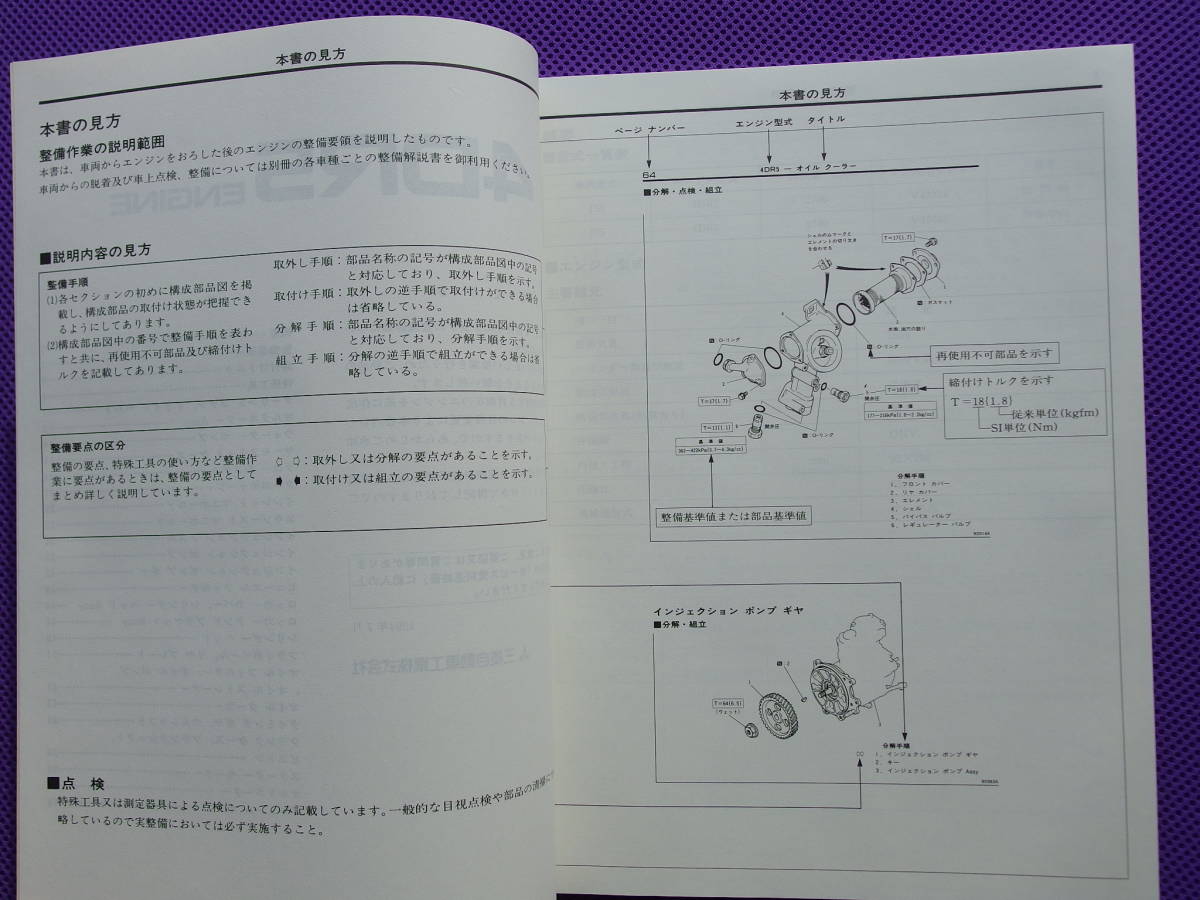 本書の見方
本書の見方
整備作業の説明範囲
本書は、車両からエンジンをおろした後のエンジンの整備要領を説明したものです。
車両からの脱着及び車上点検、整備については別冊の各車種ごとの整備解説書を御利用ください。
■説明内容の見方
整備手順
(1)各セクションの初めに構成部品図を掲
載し、構成部品の取付け状態が把握でき
るようにしてあります。
(2)構成部品図中の番号で整備手順を表わ
すと共に、再使用不可部品及び締付けト
ルクを記載してあります。
取外し手順：部品名称の記号が構成部品図中の記号
と対応しており、取外し手順を示す。
取付け手順：取外しの逆手順で取付けができる場合
は省略している。
分解手順：部品名称の記号が構成部品図中の記号
と対応しており、分解手順を示す。
組立手順：分解の逆手順で組立ができる場合は省
略している。
整備要点の区分
整備の要点、特殊工具の使い方など整備作
業に要点があるときは、整備の要点として
まとめ詳しく説明しています。
：取外し又は分解の要点があることを示す。
：取付け又は組立の要点があることを示す。
■点 検
特殊工具又は測定器具による点検についてのみ記載しています。一般的な目視点検や部品の清掃に
略しているので実整備においては必ず実施すること。
本書の見方
ページ ナンバー
エンジン型式
タイトル
64
4DR5 ― オイル クーラー
■分解・点検・組立
シェルのムマークと
エレメントの切り欠き
を合わせる
T=17{1.7}
ガスケット
水漏、油穴の詰り
O-リング
O-リング
再使用不可部品を示す
T=17{1.7}
T=18{1.8}
締付けトルクを示す
T=18{1.8}
従来単位(kgfm)
SI単位(Nm)
開弁圧
基 準 値
T=11{1.1}
開弁圧
O-リング
基 準 値
整備基準値または部品基準値
分解手順
1．フロント カバー
2．リヤ カバー
3．エレメント
4．シェル
5．バイパス バルブ
6．レギュレーター バルブ
インジェクション ポンプ ギヤ
■分解・組立
1
2
T=64{6.5}
(ウェット)
3
分解手順
1．インジェクション ポンプ ギヤ
2．キー
3．インジェクション ポンプ Assy